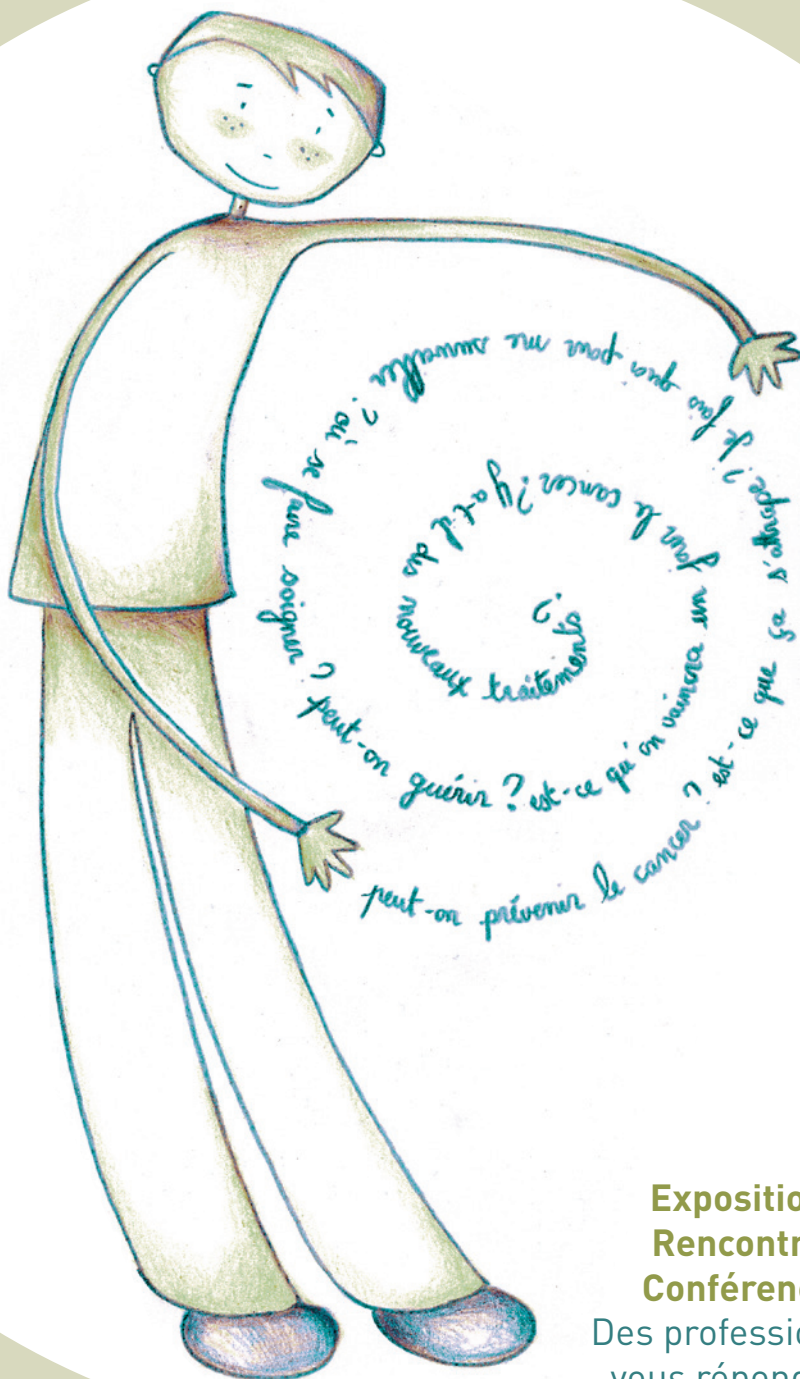 peut-on prévenir le cancer ? est-ce que ça s'attrape ? Je fais quoi pour me surveiller ? où se faire soigner ? peut-on guérir ? est-ce qu'on vaincra un jour le cancer ? Y a-t-il des nouveaux traitements ?
Expositio
Rencontr
Conféren
Des professio
vous répon